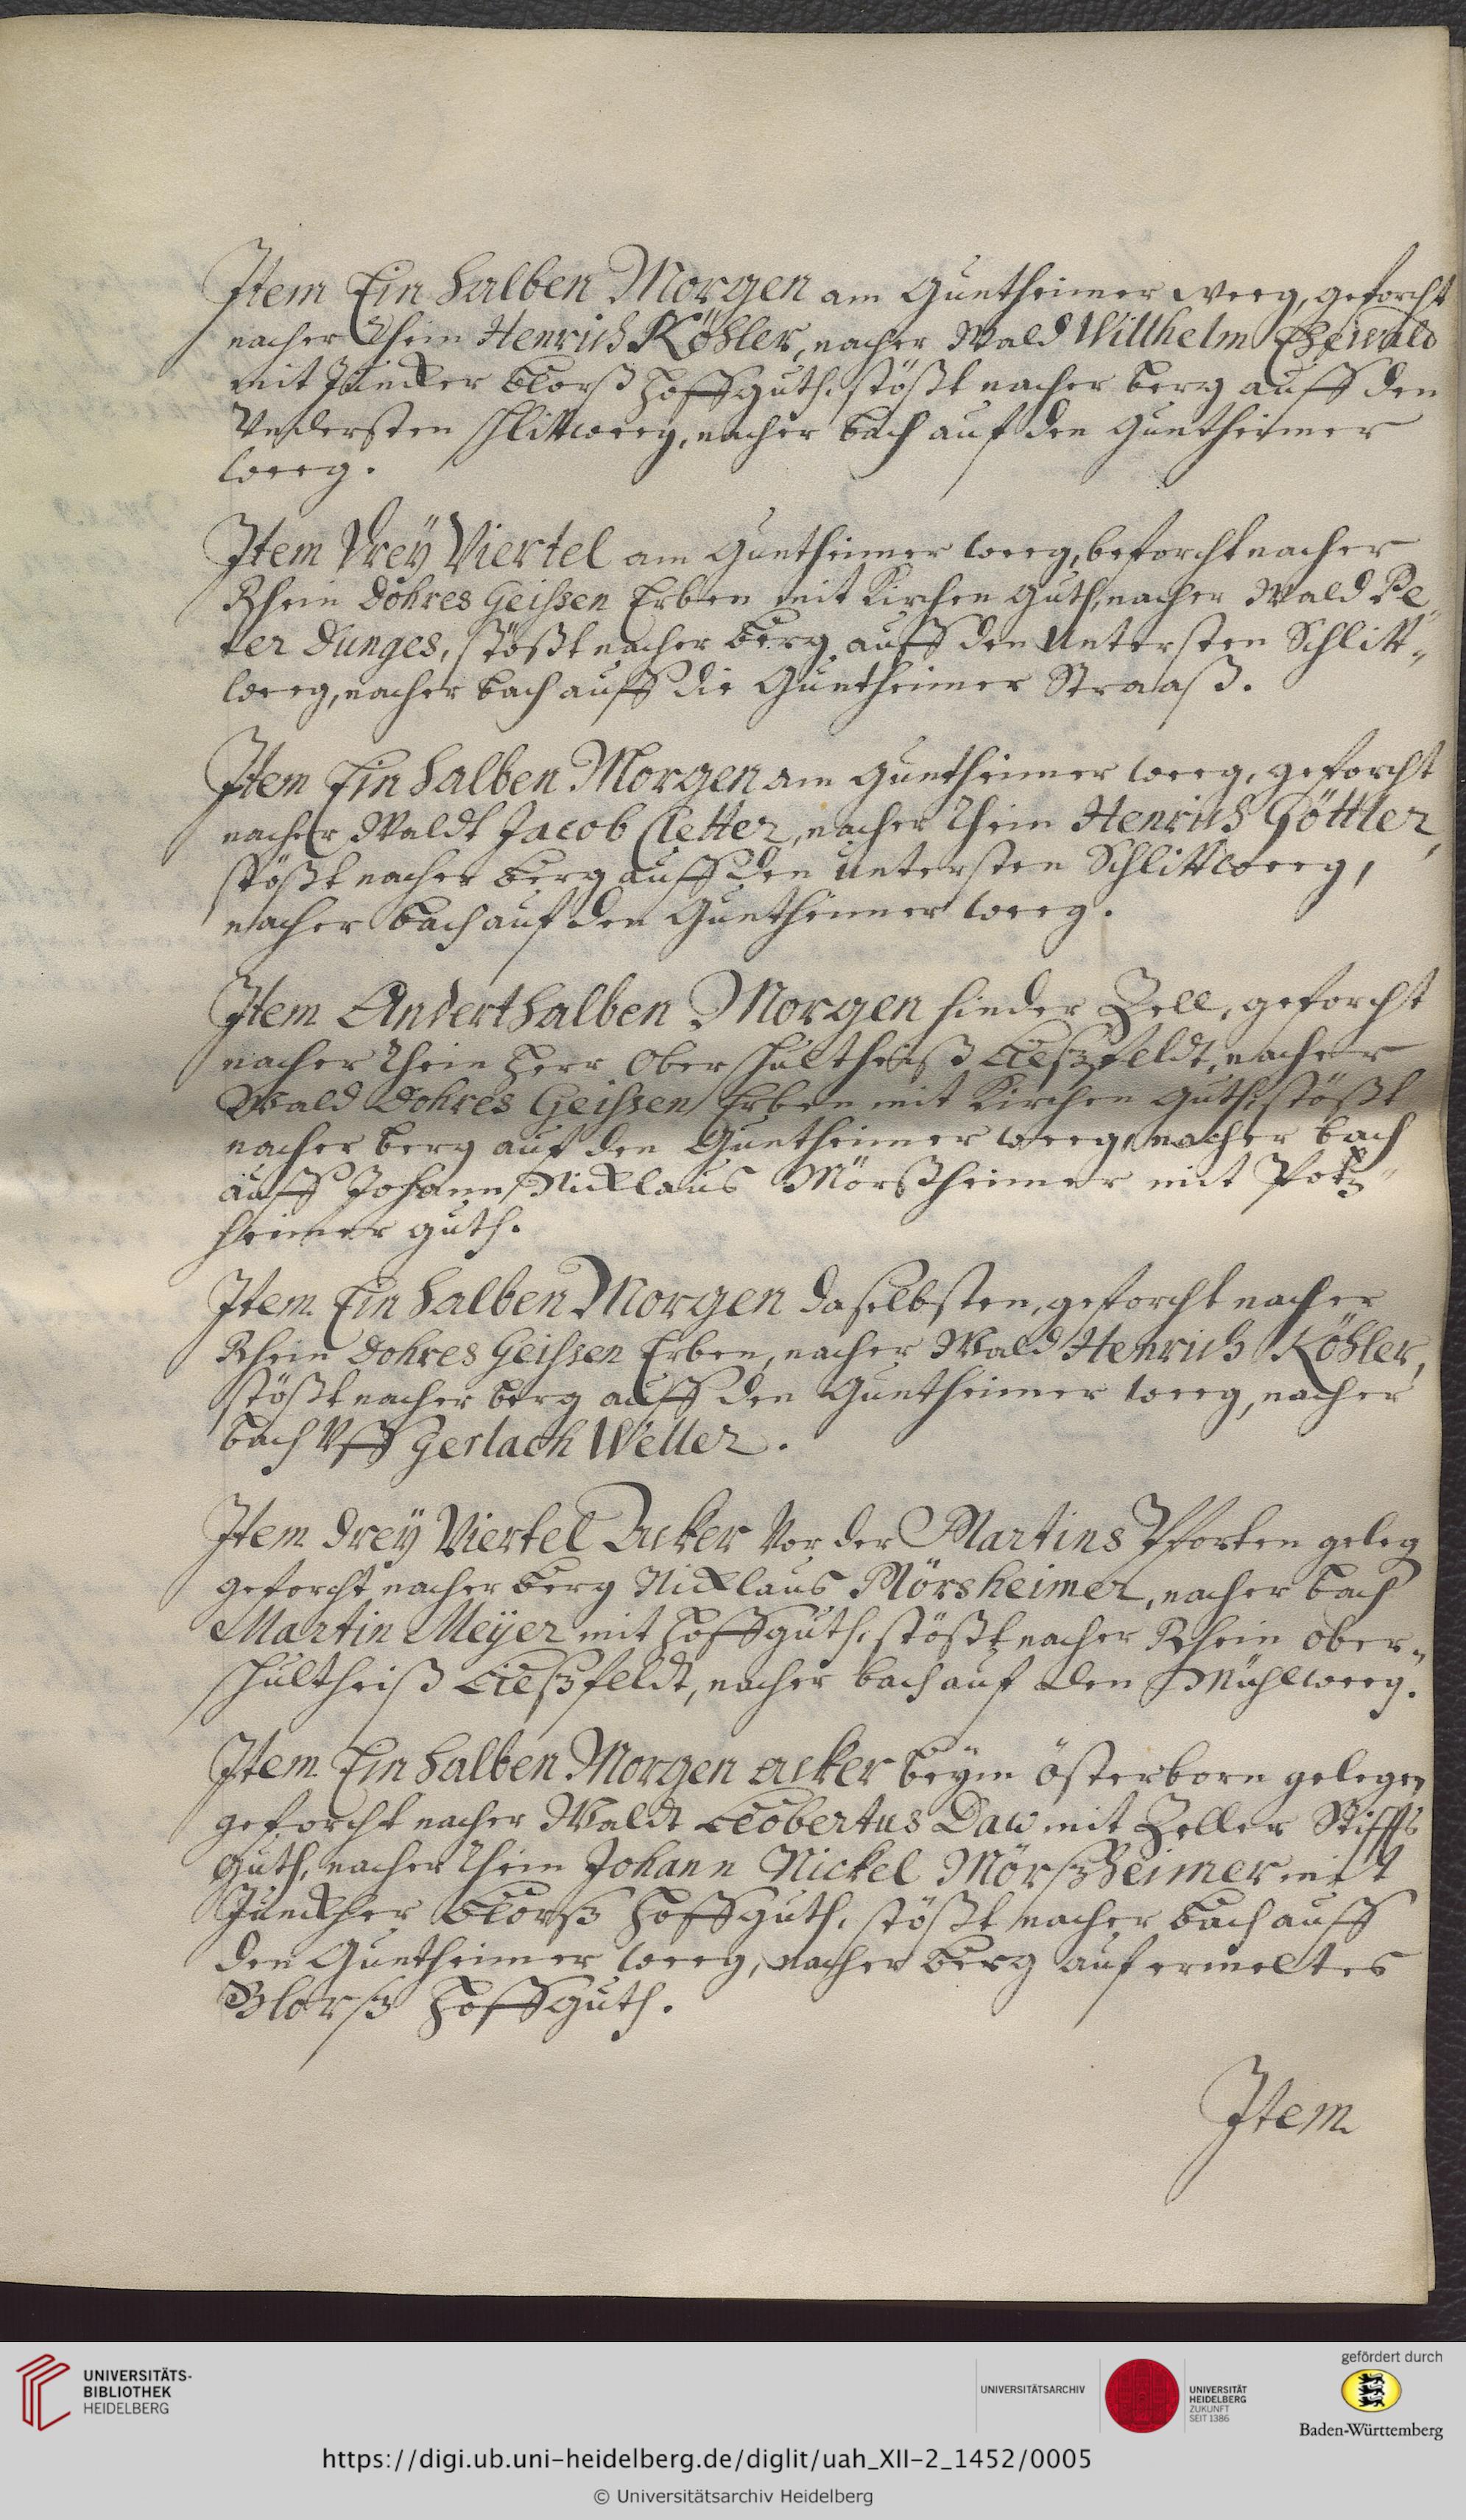 Item Ein halben Morgen am Guntheimer weeg, geforcht
nacher Rhein Henrich Köhler, nacher Wald Willhelm Ehewald
mit Juncker Blorß Hoffguth, stößt nacher berg auff den
Vndersten schlittweeg, nacher bach auf den Guntheimer
weeg.
Item Drey Viertel am Guntheimer weeg, beforcht nacher
Rhein Dohres Geissen Erben mit Kirchen Guth, nacher Wald Pe„
ter Dunges, stößt nacher berg auff den Untersten Schlitt„
weeg, nacher bach auff die Guntheimer Straaß.
Item Ein halben Morgen am Guntheimer weeg, geforcht
nacher Waldt Jacob Cletter, nacher Rhein Henrich Göttler,
stößt nacher berg auff den untersten Schlittweeg,
nacher bach auf den Guntheimer weeg.
Item Anderthalben Morgen hinder Zell, geforcht
nacher Rhein Herr Oberschultheiß Ließfeldt, nacher
Wald Dohres Geissen Erben mit Kirchen Guth, stößt
nacher berg auf den Guntheimer weeg, nacher bach
auff Johann Nicklaus Mörßheimer mit Potz„
heimer guth.
Item Ein halben Morgen daselbsten, geforcht nacher
Rhein Dohres Geissen Erben, nacher Wald Henrich Köhler,
stößt nacher berg auff den Guntheimer weeg, nacher
bach Vff Gerlach Weller.
Item drey Viertel Acker Vor der Martins Pforten geleg
geforcht nacher berg Nicklaus Mörsheimer, nacher bach
Martin Meyer mit Hoffguth, stößt nacher Rhein Ober„
schultheiß Ließfeldt, nacher bach auf den Mühlweeg.
Item Ein halben Morgen acker beym Österborn gelegen
geforcht nacher Waldt Daw mit Zeller Stiffts
Guth, nacher Rhein Johann Nickel Mörßheimer mit
Junckher Blorß Hoffguth, stößt nacher bach auff
den Guntheimer weeg, nacher berg auf ermeltes
Blorß Hoffguth.
Item
UNIVERSITÄTS-
BIBLIOTHEK
HEIDELBERG
UNIVERSITÄTSARCHIV
UNIVERSITÄT
HEIDELBERG
ZUKUNFT
SEIT 1386
gefördert durch
Baden-Württemberg
https://digi.ub.uni-heidelberg.de/diglit/uah_XII-2_1452/0005
© Universitätsarchiv Heidelberg